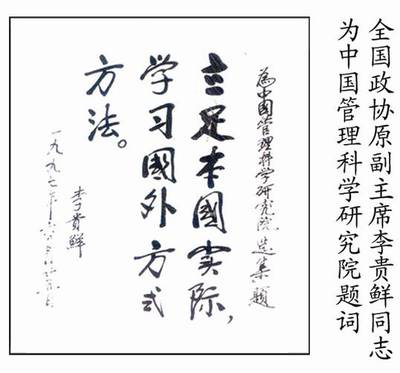 全国政协原副主席李贵鲜同志
为中国管理科学研究院题词
為中國管理科学研究院选集題
立足本國实际,
学习國外方式
方法。
李貴鮮
一九九七年